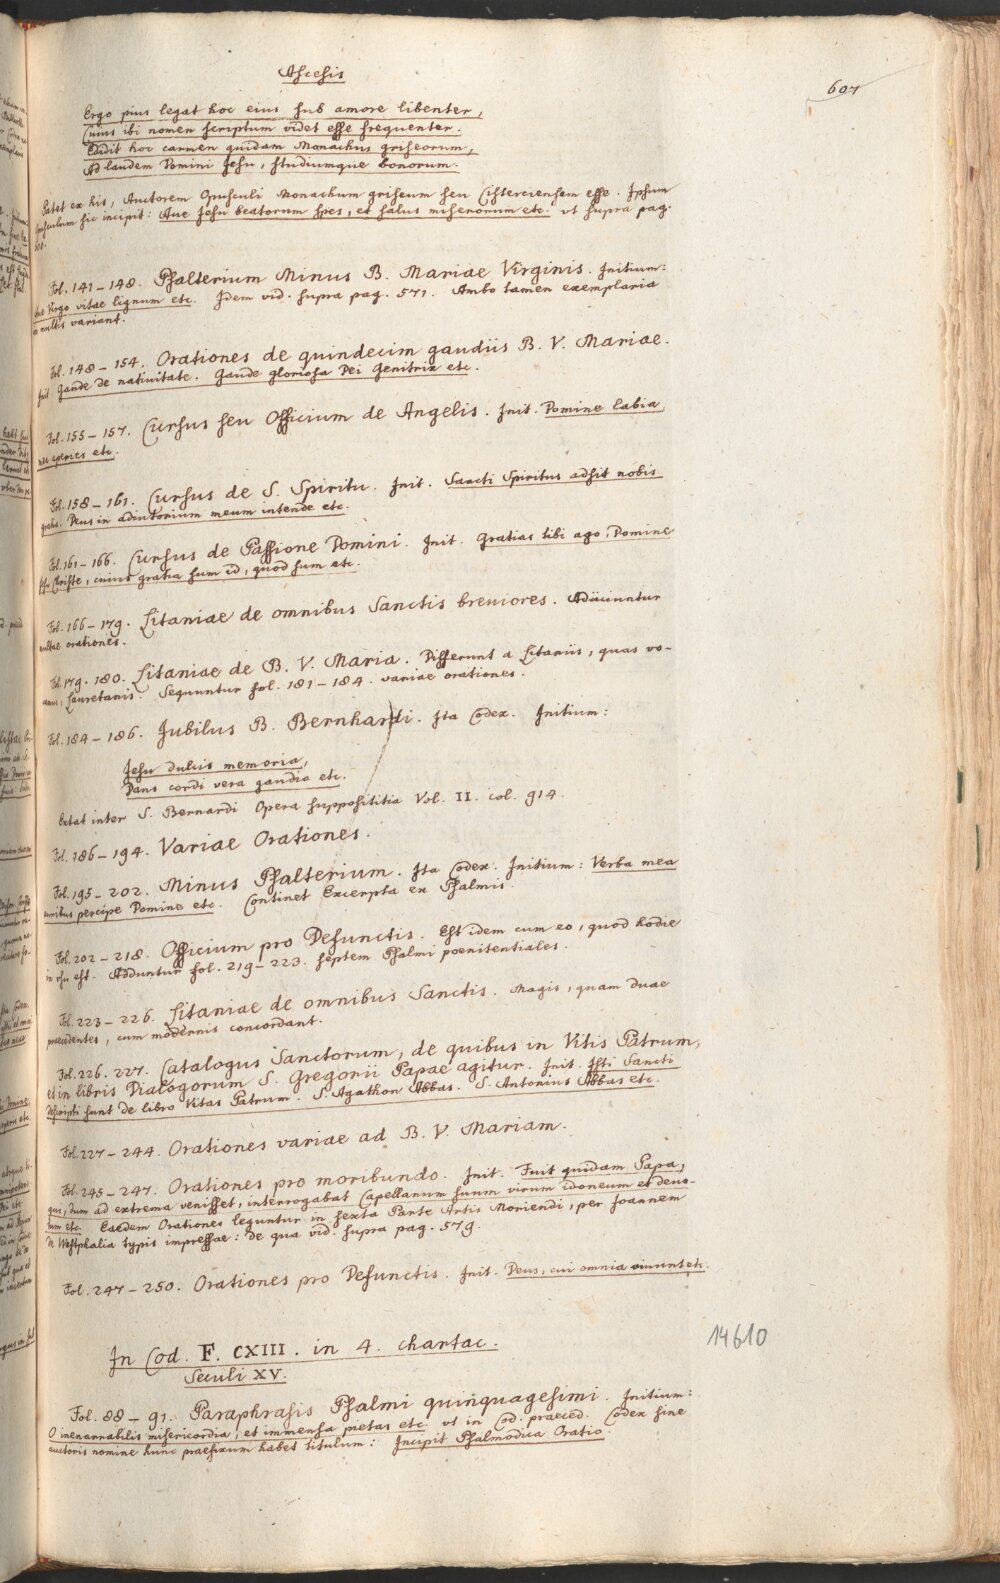 Ascesis
697
Ergo pius legat hoc eius sub amore libenter,
Cuius ibi nomen scriptum videt esse frequenter.
Edidit hoc carmen quidam Monachus griseorum,
Ad laudem Domini Jesu, studiumque bonorum.
Patet ex his, Auctorem Opusculi Monachum griseum seu Cisterciensem esse. Ipsum
opusculum sic incipit: Aue Jesu beatorum spes, et salus miserorum etc. vt supra pag.
Fol. 141–148. Psalterium Minus B. Mariae Virginis. Initium:
Aue Virgo vitae lignum etc. Idem vid. supra pag. 571. Ambo tamen exemplaria
in multis variant.
Fol. 148–154. Orationes de quindecim gaudiis B. V. Mariae.
Init. Gaude de natiuitate. Gaude gloriosa Dei Genitrix etc.
Fol. 155–157. Cursus seu Officium de Angelis. Init. Domine labia
mea aperies etc.
Fol. 158–161. Cursus de S. Spiritu. Init. Sancti Spiritus adsit nobis
gratia. Deus in adiutorium meum intende etc.
Fol. 161–166. Cursus de Passione Domini. Init. Gratias tibi ago, Domine
Jesu Christe, cuius gratia sum id, quod sum etc.
Fol. 166–179. Litaniae de omnibus Sanctis breuiores. Adiiciuntur
multae orationes.
Fol. 179. 180. Litaniae de B. V. Maria. Differunt a Litaniis, quas vo-
camus, Lauretanis. Sequuntur fol. 181–184. variae orationes.
Fol. 184–186. Jubilus B. Bernhardi. Ita Codex. Initium:
Jesu dulcis memoria,
Dans cordi vera gaudia etc.
Extat inter S. Bernardi Opera supposititia Vol. II. col. 914.
Fol. 186–194. Variae Orationes.
Fol. 195–202. Minus Psalterium. Ita Codex. Initium: Verba mea
auribus percipe Domine etc. Continet Excerpta ex Psalmis.
Fol. 202–218. Officium pro Defunctis. Est idem cum eo, quod hodie
in vsu est. Adduntur fol. 219–223. septem Psalmi poenitentiales.
Fol. 223–226. Litaniae de omnibus Sanctis. Magis, quam duae
praecedentes, cum modernis concordant.
Fol. 226. 227. Catalogus Sanctorum, de quibus in Vitis Patrum,
et in libris Dialogorum S. Gregorii Papae agitur. Init. Isti Sancti
descripti sunt de libro Vitas Patrum. S. Agathon Abbas. S. Antonius Abbas etc.
Fol. 227–244. Orationes variae ad B. V. Mariam.
Fol. 245–247. Orationes pro moribundo. Init. Fuit quidam Papa,
qui, dum ad extrema venisset, interrogabat Capellanum suum virum idoneum et deuo-
tum etc. Eaedem Orationes leguntur in sexta Parte Artis Moriendi, per Joannem
de Westphalia typis impressae: de qua vid. supra pag. 579.
Fol. 247–250. Orationes pro Defunctis. Init. Deus, cui omnia viuunt etc.
In Cod. F. CXIII. in 4. chartac.
14610
Seculi XV.
Fol. 88–91. Paraphrasis Psalmi quinquagesimi. Initium:
O inenarrabilis misericordia, et immensa pietas etc. vt in Cod. praeced. Codex sine
auctoris nomine hunc praefixum habet titulum: Incipit Psalmodica Oratio.